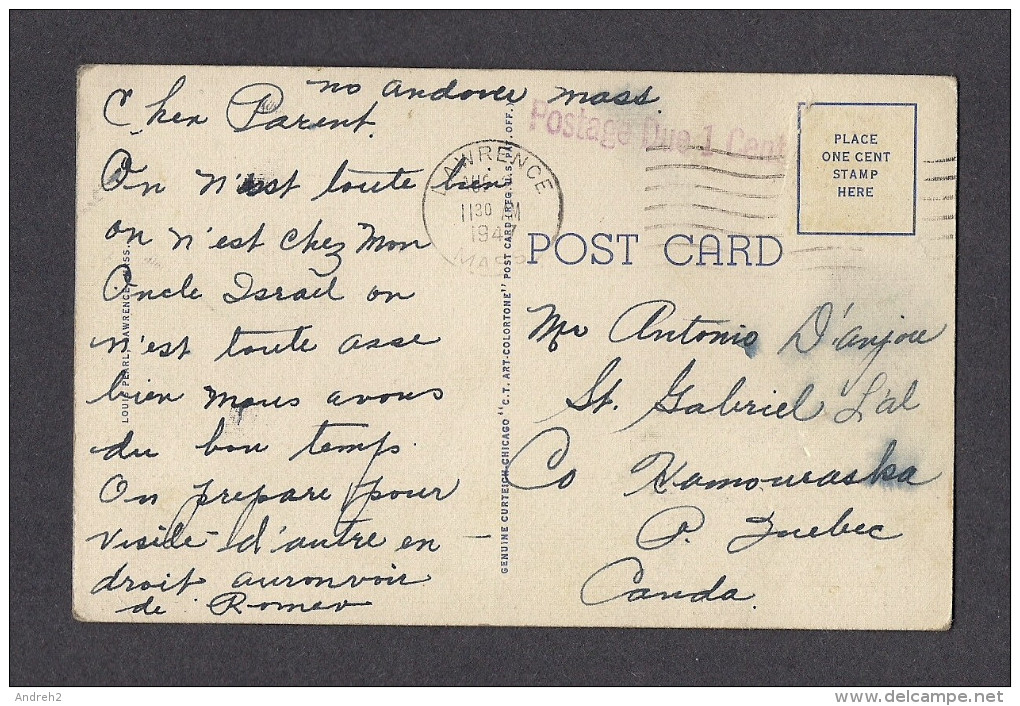 no andover mass.
Cher Parent.
On n'est toute bien
on n'est chez Mon
Oncle Israël on
n'est toute asse
bien nous avous
du bon temps.
On prepare pour
visite d'autre en
droit auronvoir
de Romeo
LOUIS PEARL, LAWRENCE, MASS.
GENUINE CURTEICH-CHICAGO "C.T. ART-COLORTONE" POST CARD (REG. U.S. PAT. OFF.)
Postage Due 1 Cent
LAWRENCE
1130 AM
MASS
PLACE
ONE CENT
STAMP
HERE
POST CARD
Mr Antonio D'anjou
St. Gabriel L'al
Co Kamouraska
P. Quebec
Canda.
Andreh2
delcampe.net